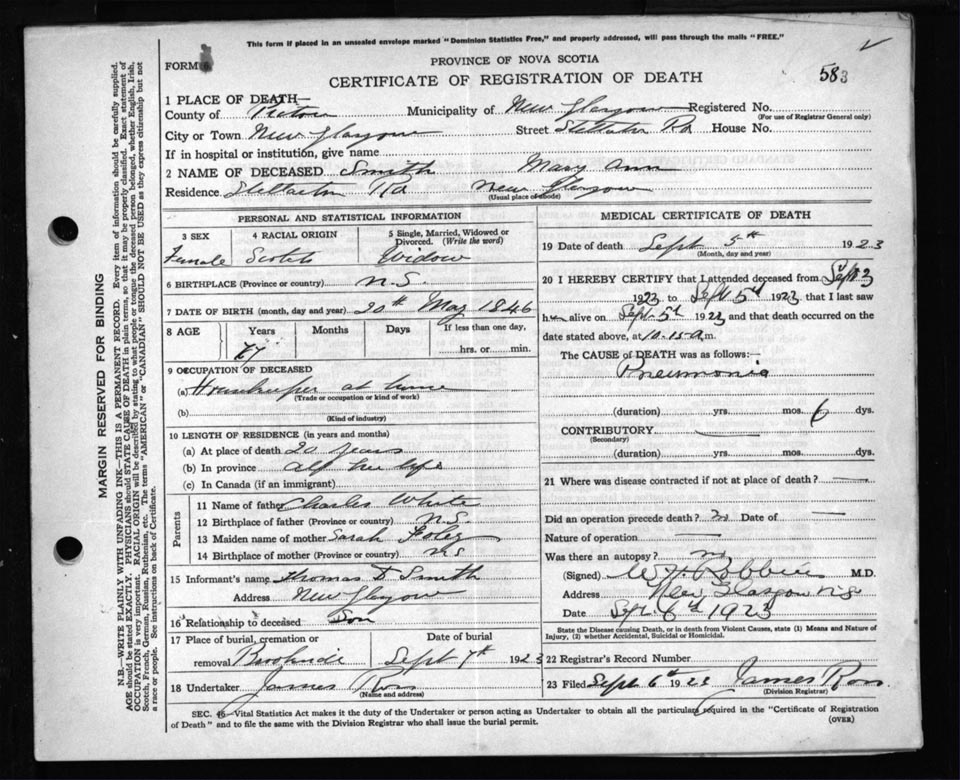 This form if placed in an unsealed envelope marked "Dominion Statistics Free," and properly addressed, will pass through the mails "FREE."
FORM
PROVINCE OF NOVA SCOTIA
CERTIFICATE OF REGISTRATION OF DEATH
583
1 PLACE OF DEATH—
County of Pictou Municipality of New Glasgow Registered No.
(For use of Registrar General only)
City or Town New Glasgow Street Stellarton Rd House No.
If in hospital or institution, give name
2 NAME OF DECEASED Smith Mary Ann
Residence Stellarton Rd New Glasgow
(Usual place of abode)
PERSONAL AND STATISTICAL INFORMATION
3 SEX 4 RACIAL ORIGIN 5 Single, Married, Widowed or
Divorced. (Write the word)
Female Scotch Widow
6 BIRTHPLACE (Province or country) N.S.
7 DATE OF BIRTH (month, day and year) 20th May 1846
8 AGE Years Months Days If less than one day,
77 hrs. or min.
9 OCCUPATION OF DECEASED
(a) Housekeeper at home
(Trade or occupation or kind of work)
(b)
(Kind of industry)
10 LENGTH OF RESIDENCE (in years and months)
(a) At place of death 20 years
(b) In province all her life
(c) In Canada (if an immigrant)
Parents
11 Name of father Charles White
12 Birthplace of father (Province or country) N.S.
13 Maiden name of mother Sarah
14 Birthplace of mother (Province or country) N.S
15 Informant's name Thomas D Smith
Address New Glasgow
16 Relationship to deceased Son
17 Place of burial, cremation or Date of burial
removal Sept 7th 1923
18 Undertaker James Ross
(Name and address)
MEDICAL CERTIFICATE OF DEATH
19 Date of death Sept 5th 1923
(Month, day and year)
20 I HEREBY CERTIFY that I attended deceased from Sept 3
1923 to Sept 5th 1923 that I last saw
her alive on Sept 5th 1923 and that death occurred on the
date stated above, at 10.15 a.m.
The CAUSE of DEATH was as follows:—
Pneumonia
(duration) yrs. mos. 6 dys.
CONTRIBUTORY
(Secondary)
(duration) yrs. mos. dys.
21 Where was disease contracted if not at place of death?
Did an operation precede death? no Date of
Nature of operation
Was there an autopsy? no
(Signed) M.D.
Address New Glasgow N.S.
Date Sept. 6th 1923
State the Disease causing Death, or in death from Violent Causes, state (1) Means and Nature of
Injury, (2) whether Accidental, Suicidal or Homicidal.
22 Registrar's Record Number
23 Filed Sept 6th 1923 James Ross
(Division Registrar)
SEC. 46—Vital Statistics Act makes it the duty of the Undertaker or person acting as Undertaker to obtain all the particulars required in the "Certificate of Registration
of Death" and to file the same with the Division Registrar who shall issue the burial permit.
(OVER)
MARGIN RESERVED FOR BINDING
N.B.—WRITE PLAINLY WITH UNFADING INK—THIS IS A PERMANENT RECORD. Every item of information should be carefully supplied.
AGE should be stated EXACTLY. PHYSICIANS should STATE CAUSE OF DEATH in plain terms, so that it may be properly classified. Exact statement of
OCCUPATION is very important. RACIAL ORIGIN will be described by stating to what people or tongue the deceased person belonged, whether English, Irish,
Scotch, French, German, Russian, Ruthenian, etc. The terms "AMERICAN" or "CANADIAN" SHOULD NOT BE USED as they express citizenship but not
a race or people. See instructions on back of Certificate.